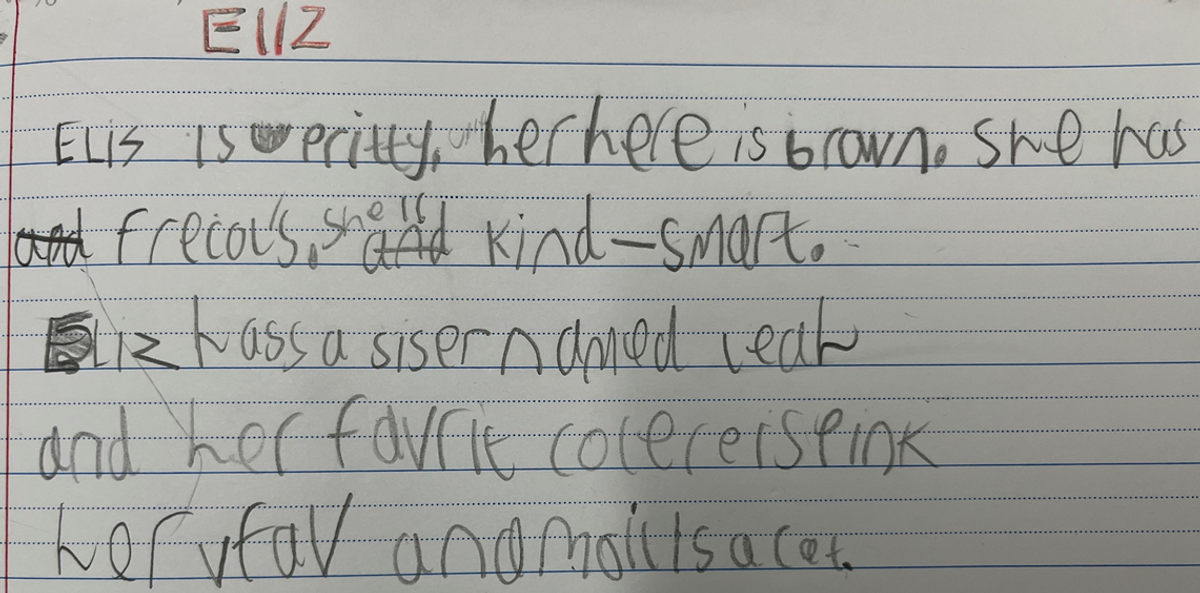 EllZ
ELis is pritty, her here is brown. She has
and frecols. she is and kind-smart.
ELIZ hass a siser named leah
and her favrit colereris pink
her vfav andmoil is a cat.